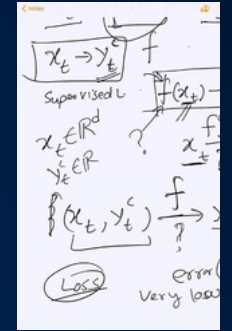 Notes
x_t → y_t^c f
Supervised L
f(x_t) –
x_t ∈ ℝ^d ?
y_t^c ∈ ℝ x_t f ?
{(x_t, y_t^c) f → ?
Loss
error(
Very low